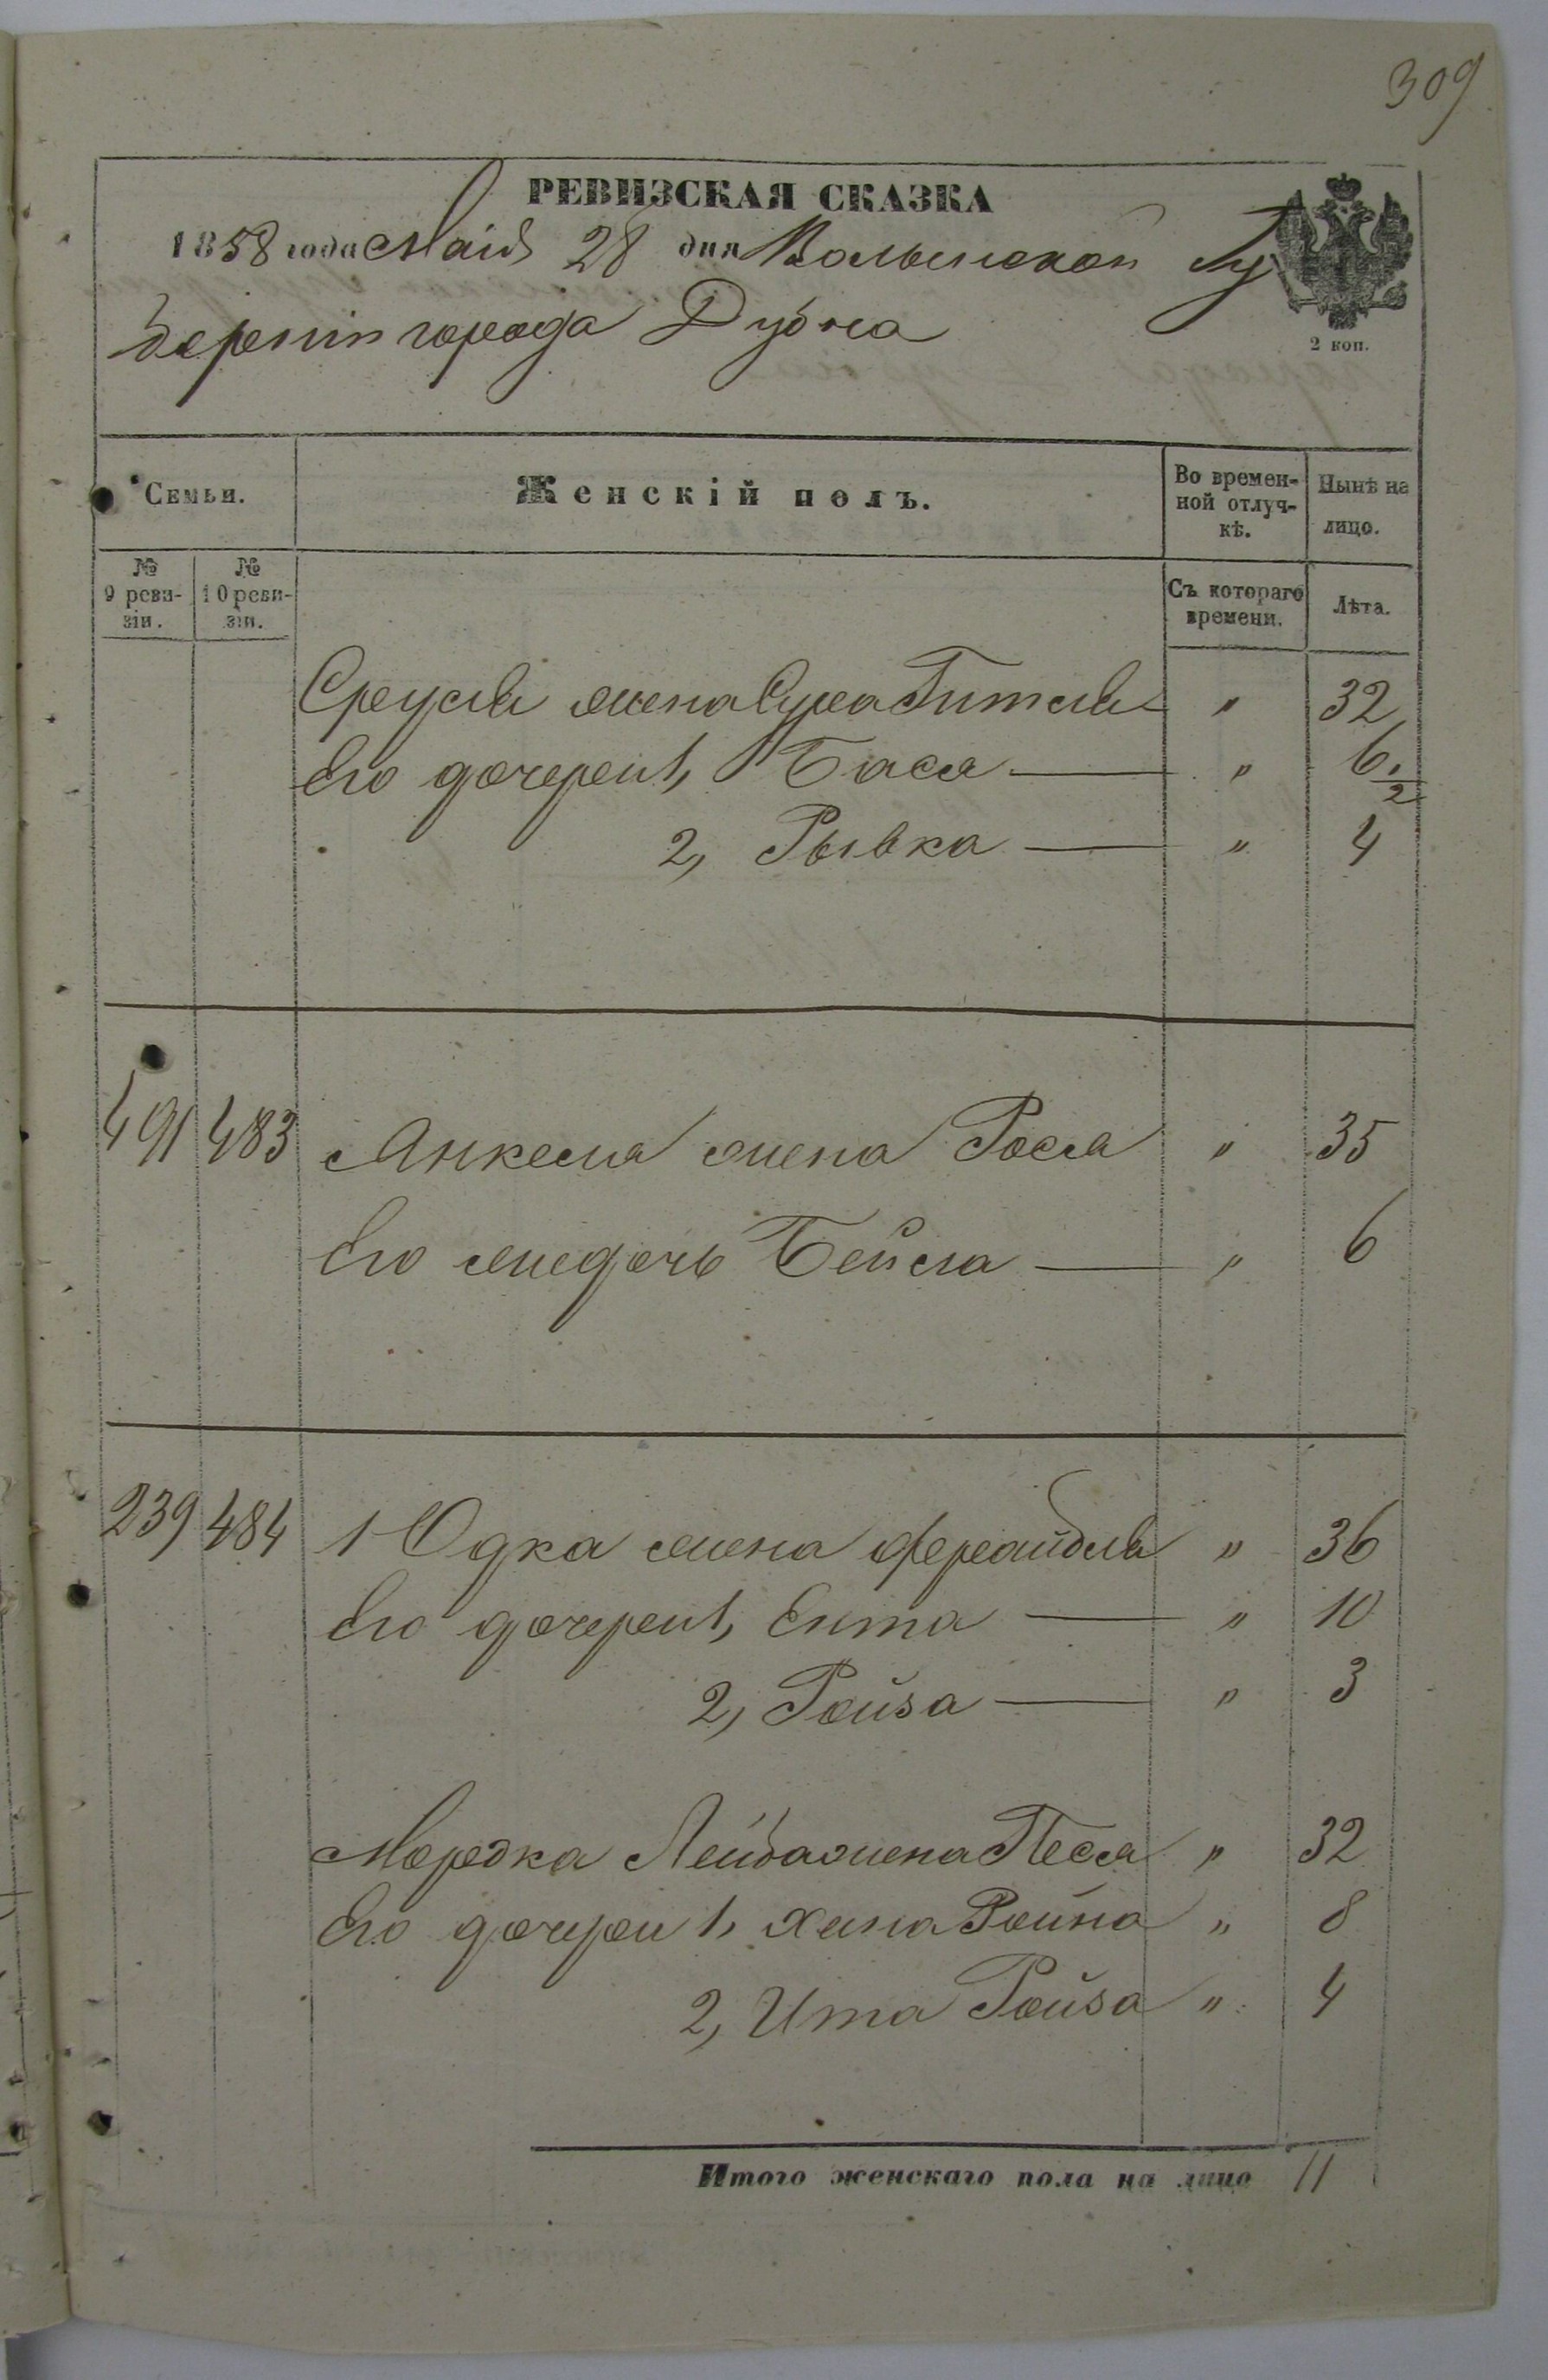 309
РЕВИЗСКАЯ СКАЗКА
1858 года Маія 28 дня Волынской Гу
берніи города Дубна
2 коп.
Семьи. Женскій полъ. Во времен-ной отлуч-кѣ. Нынѣ на лицо.
№ 9 реви-зіи. № 10 реви-зіи. Съ котораго времени. Лѣта.
Сруля жена Сура Гитля " 32
Его дочери 1, Бася — " 6 1/2
2, Рывка — " 4
491 483 Анкеля жена Рося " 35
Его же дочь Бейла — " 6
239 484 1 Юдка жена Фрейдля " 36
Его дочери 1, Ента — " 10
2, Ройза — " 3
Мордка Лейба жена Песя " 32
Его дочери 1, Хана " 8
2, Ита Ройза " 4
Итого женскаго пола на лицо 11